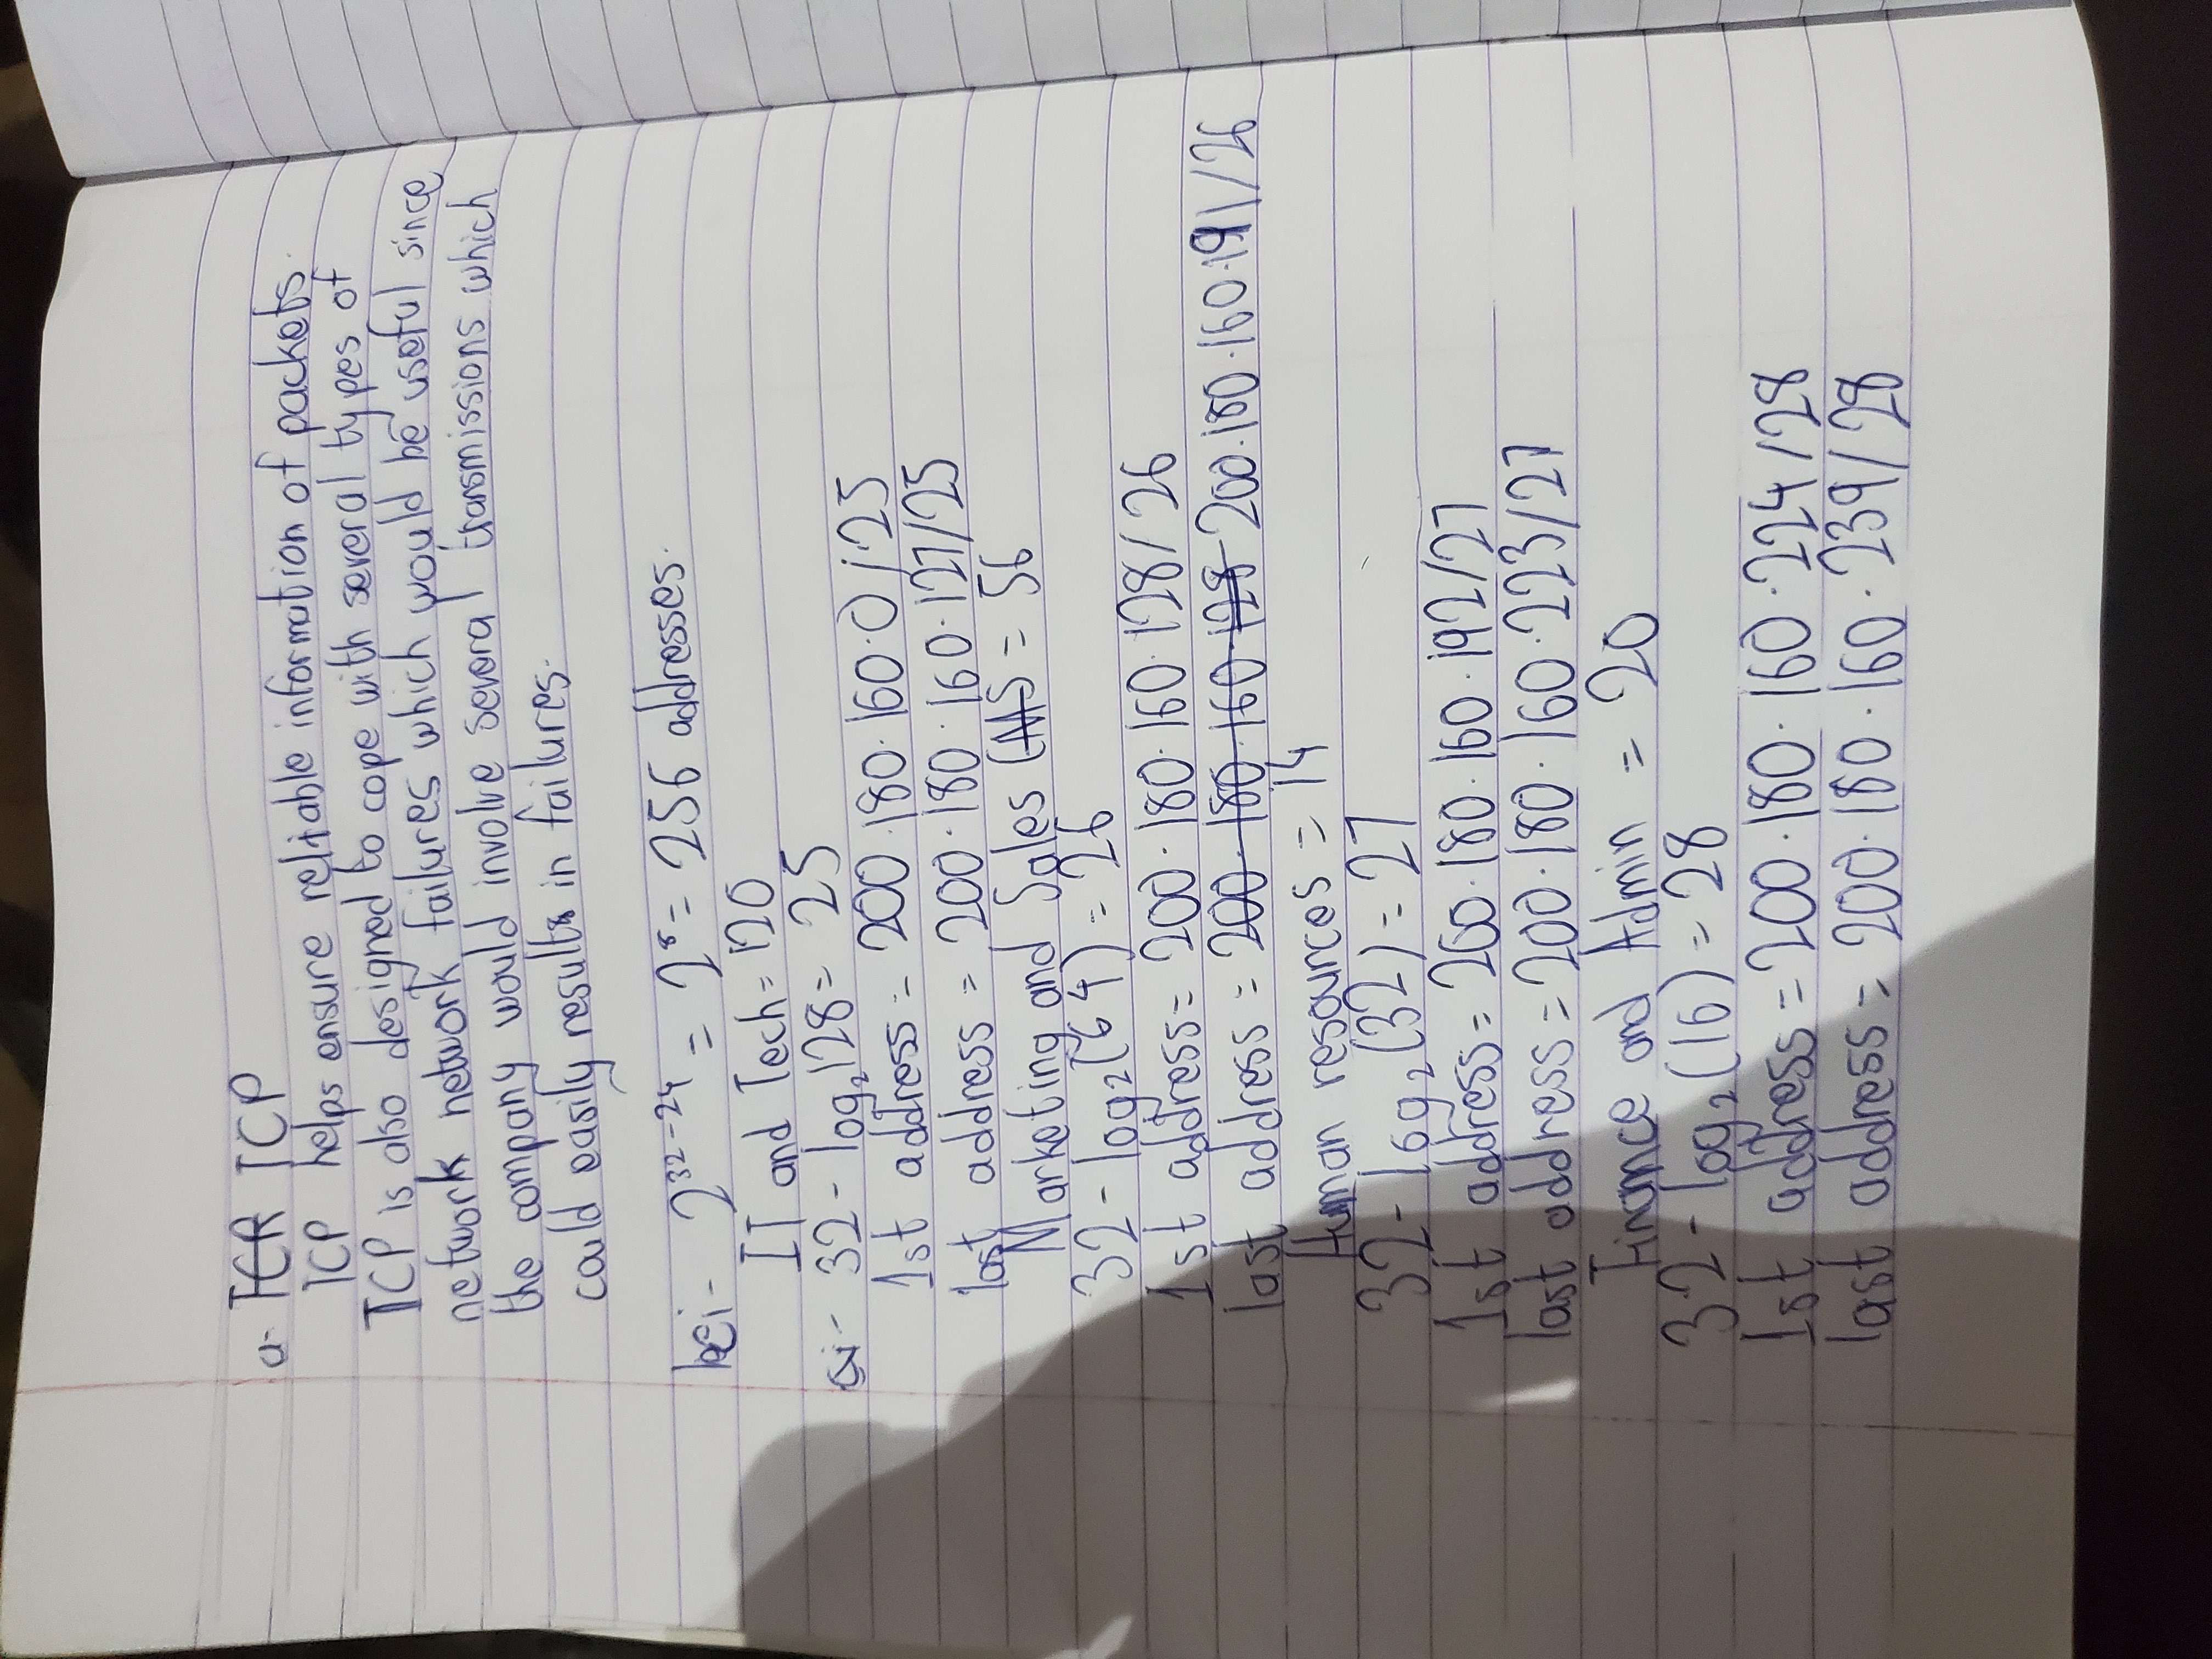 a- TCR TCP
TCP helps ensure reliable information of packets.
TCP is also designed to cope with several types of
network network failures which would be useful since
the company would involve several transmissions which
could easily results in failures.
bei- 2³²⁻²⁴ = 2⁸ = 256 addresses.
IT and Tech = 120
ai- 32 - log₂128 = 25
1st address = 200.180.160.0/25
last address = 200.180.160.127/25
Marketing and Sales (MS = 56
32 - log₂(64) = 26
1st address = 200.180.160.128/26
last address = 200.180.160.128 200.180.160.191/26
Human resources = 14
32 - log₂(32) = 27
1st address = 200.180.160.192/27
last address = 200.180.160.223/27
Finance and Admin = 20
32 - log₂(16) = 28
1st address = 200.180.160.224/28
last address = 200.180.160.239/28